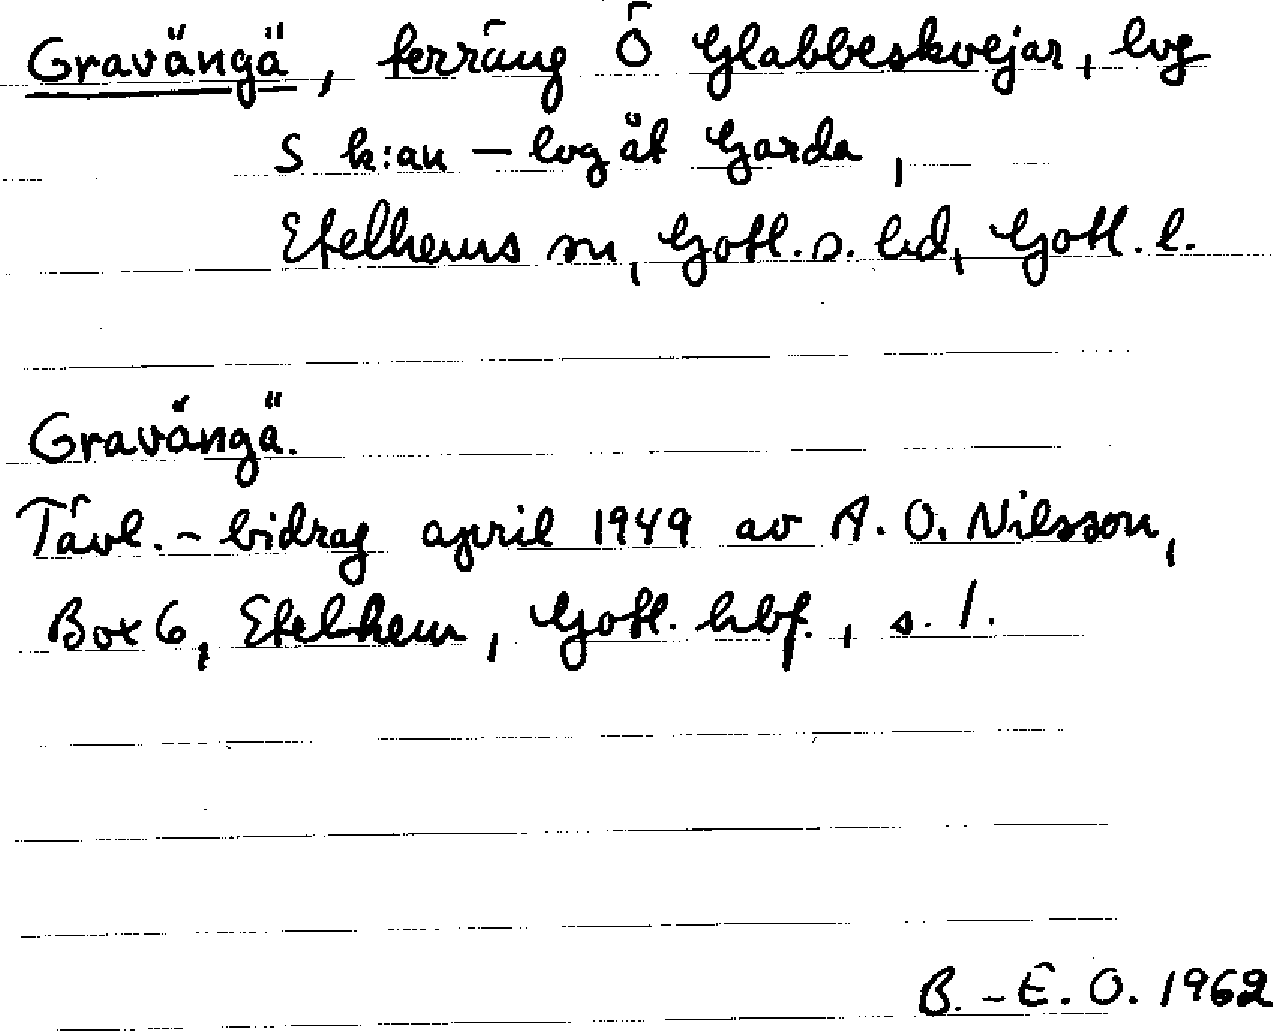 Gravängä, terräng Ö Glabbeskvejar, lvg
S k:an – lvg åt Garda,
Etelhems sn, Gotl. s. hd, Gotl. l.
Gravängä.
Tävl.- bidrag april 1949 av A. O. Nilsson,
Box 6, Etelhem, Gotl. hbf., s. 1.
B.-E. O. 1962